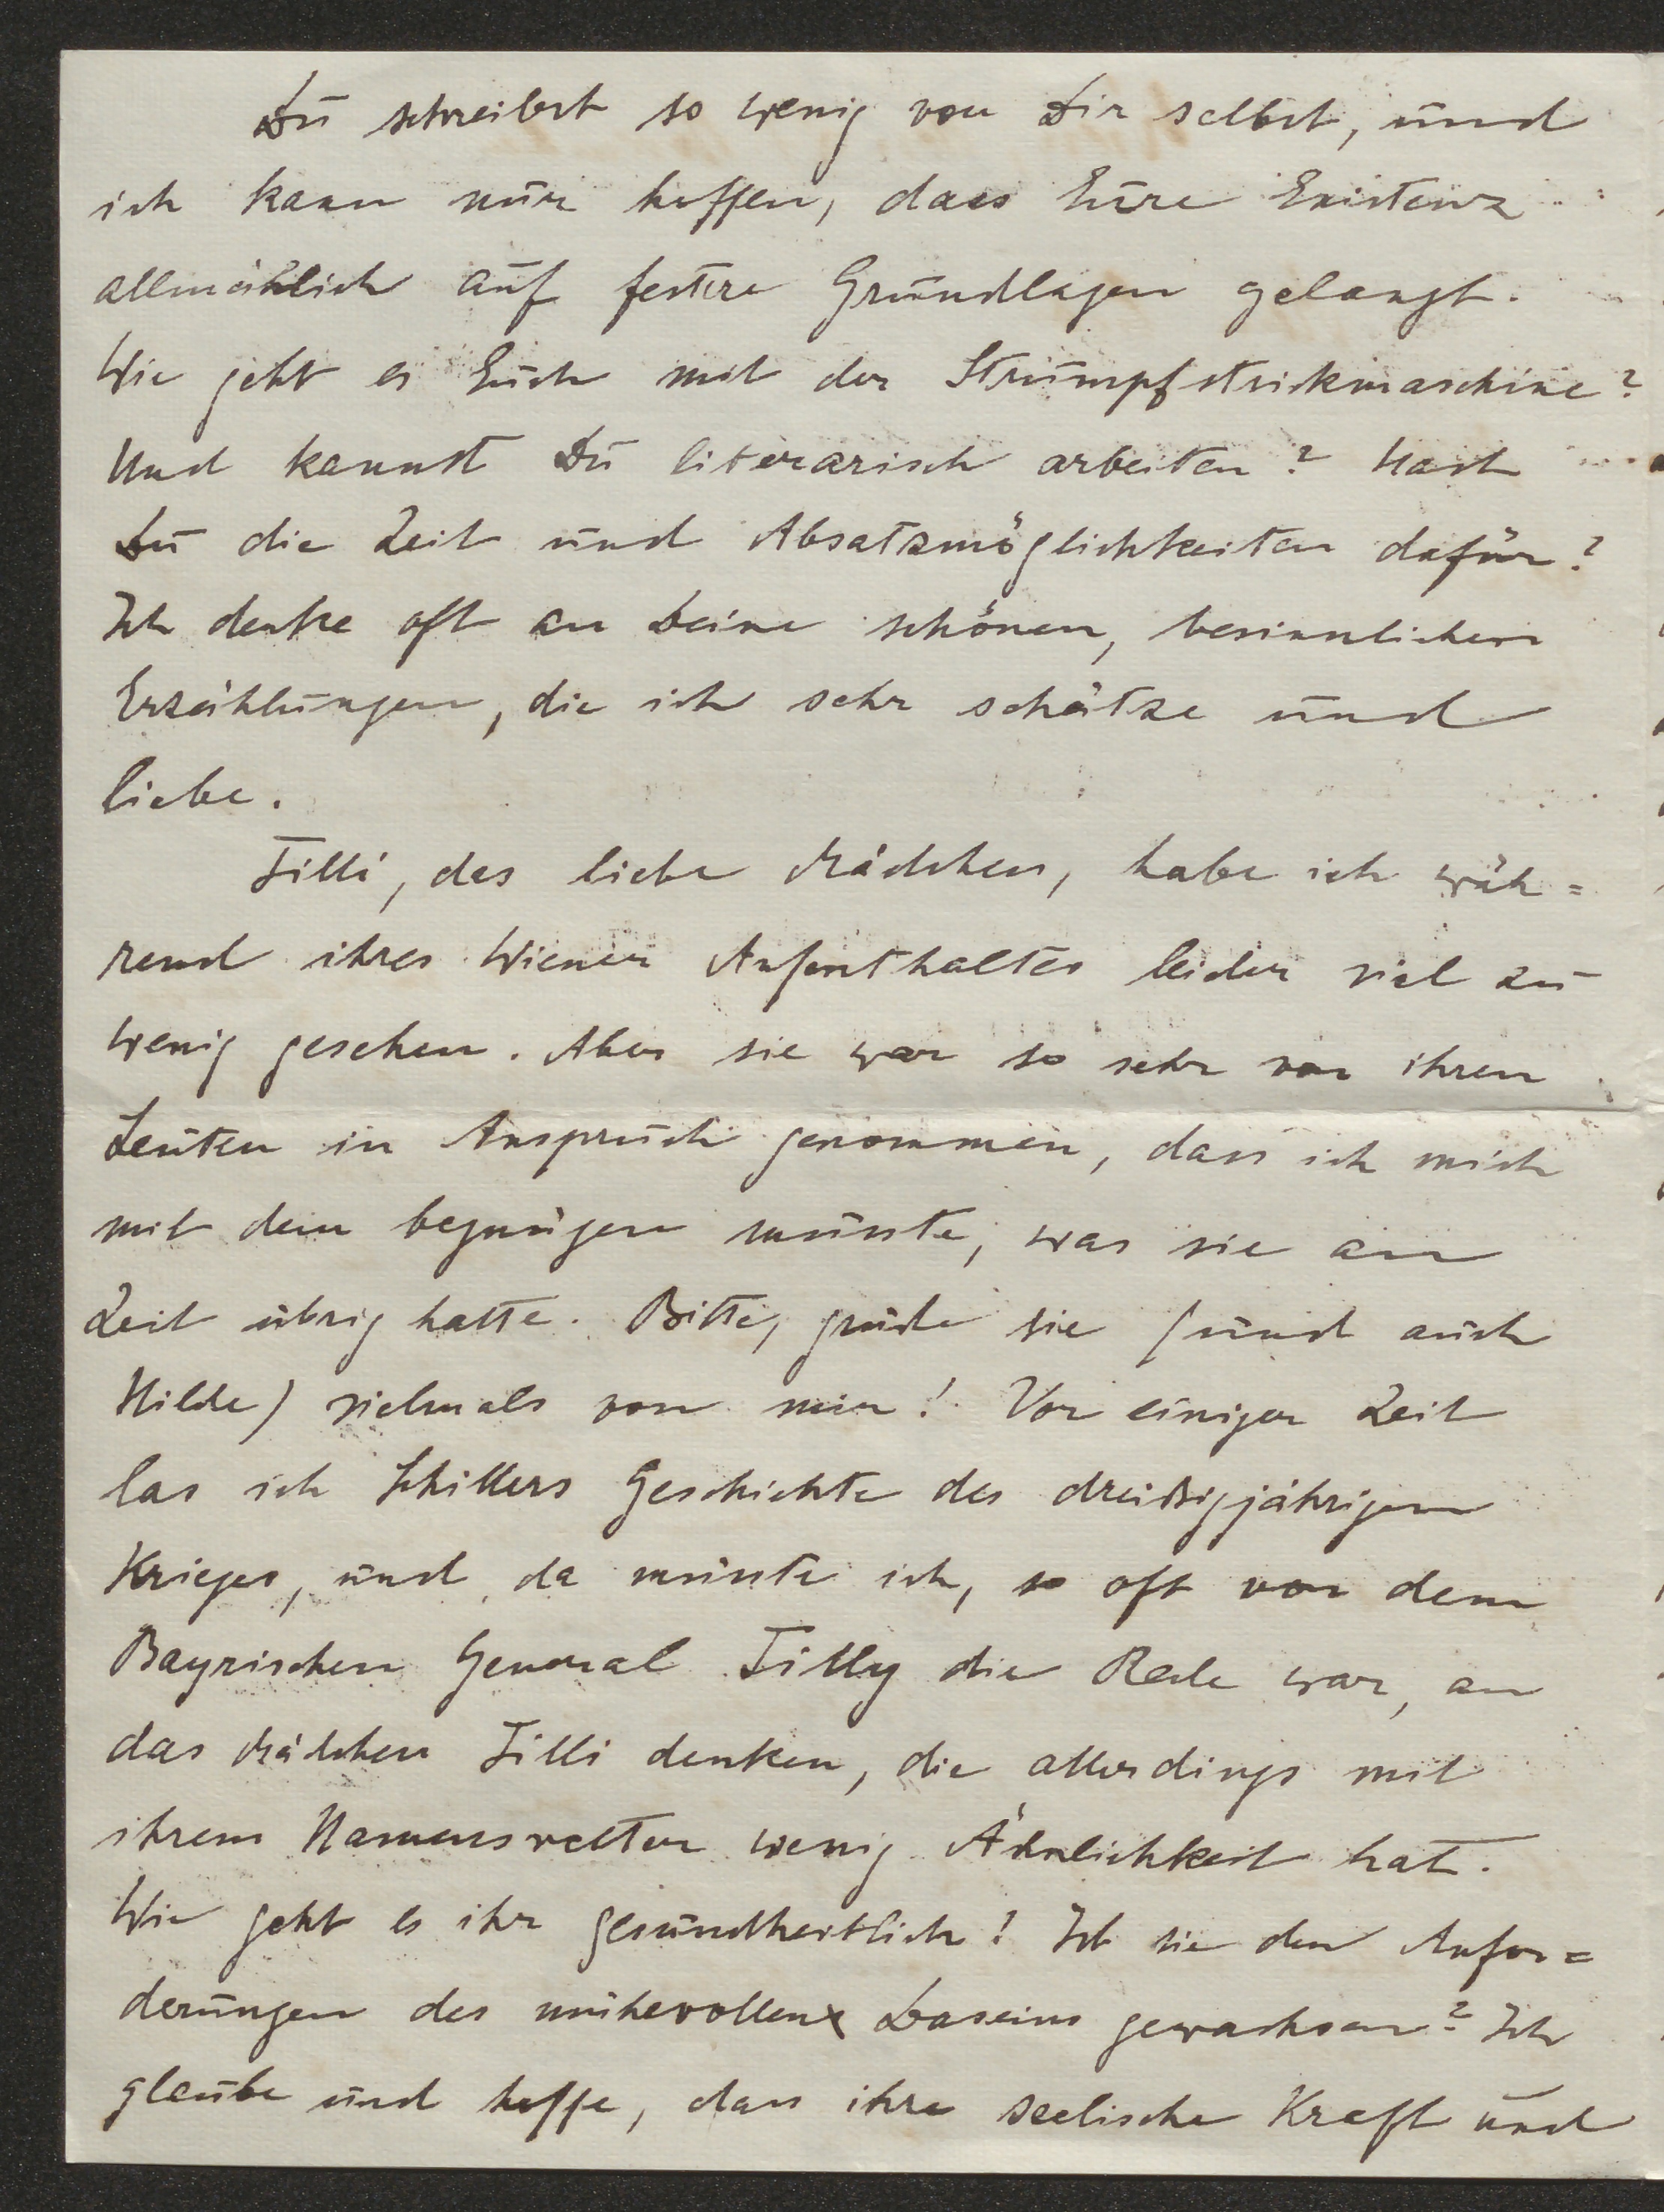 Du schreibst so wenig von Dir selbst, und
ich kann nur hoffen, dass Eure Existenz
allmählich auf festere Grundlagen gelangt.
Wie geht es Euch mit der Strumpfstrickmaschine?
Und kannst Du literarisch arbeiten? Hast
Du die Zeit und Absatzmöglichkeiten dafür?
Ich denke oft an Deine schönen, besinnlichen
Erzählungen, die ich sehr schätze und
liebe.
Tilli, das liebe Mädchen, habe ich wäh=
rend ihres Wiener Aufenthaltes leider viel zu
wenig gesehen. Aber sie war so sehr von ihren
Leuten in Anspruch genommen, dass ich mich
mit dem begnügen musste, was sie an
Zeit übrig hatte. Bitte, grüße sie (und auch
Hilde) vielmals von mir! Vor einiger Zeit
las ich Schillers Geschichte des dreißigjährigen
Krieges, und da musste ich, so oft von dem
Bayrischen General Tilly die Rede war, an
das Mädchen Tilli denken, die allerdings mit
ihrem Namensvetter wenig Ähnlichkeit hat.
Wie geht es ihr gesundheitlich? Ist sie den Anfor=
derungen des mühevollen Daseins gewachsen? Ich
glaube und hoffe, dass ihre seelische Kraft und